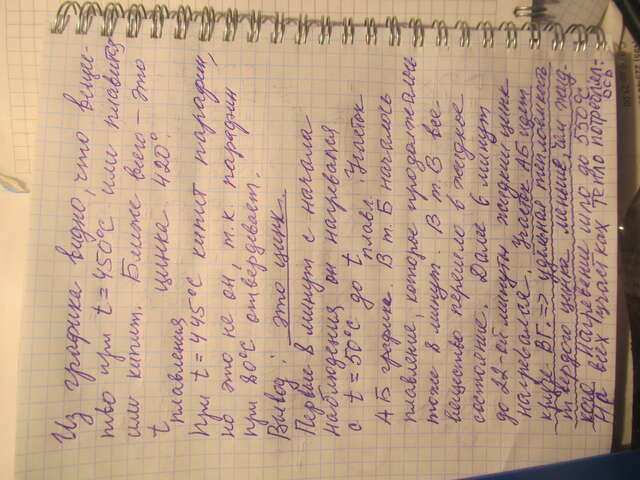 Из графика видно, что вещес-
тво при t = 450°C или плавится
или кипит. Ближе всего – это
t плавления цинка 420°.
При t = 445°C кипит парафин,
но это не он, т.к. парафин
при 80°C отвердевает.
Вывод: это цинк.
Первые 8 минут с начала
наблюдения он нагревался
с t = 50°C до t плавл. Участок
АБ графика. В т. Б началось
плавление, которое продолжалось
тоже 8 минут. В т. В все
вещество перешло в жидкое
состояние. Далее 6 минут
до 22-ой минуты жидкий цинк
нагревался. Участок АБ идет
круче ВГ. => удельная теплоемкость
твердого цинка меньше, чем жид-
кого. Нагревение шло до 550°C
На всех участках тепло потреблял-
ось